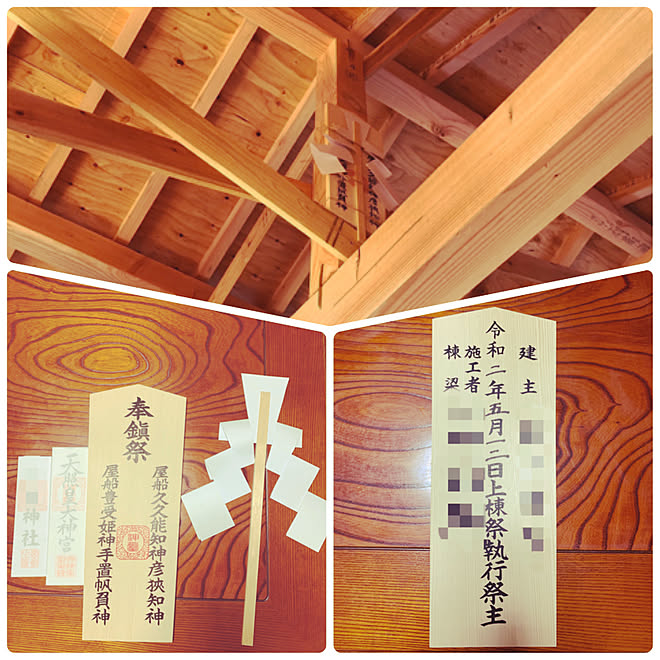 奉鎮祭
屋船久久能知神彦狹知神
屋船豊受姫神手置帆負神
天照皇大神宮
神社
建主
令和二年五月一二日上棟祭執行祭主
施工者
棟梁